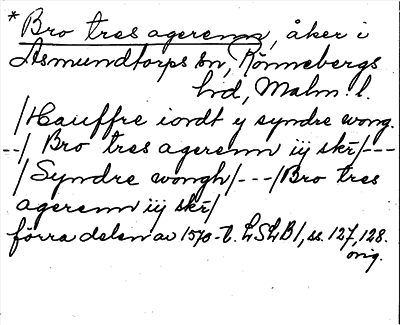 *Bro tres agerenn, åker i
Asmundtorps sn, Rönnebergs
hd, Malm. l.
/Hauffre iordt y syndre wong.
--/ Bro tres agerenn iij skr/---
/Syndre wongh/---/Bro tres
agerenn iij skr/
förra delen av 1570-t. LSLB1, ss. 127, 128.
orig.